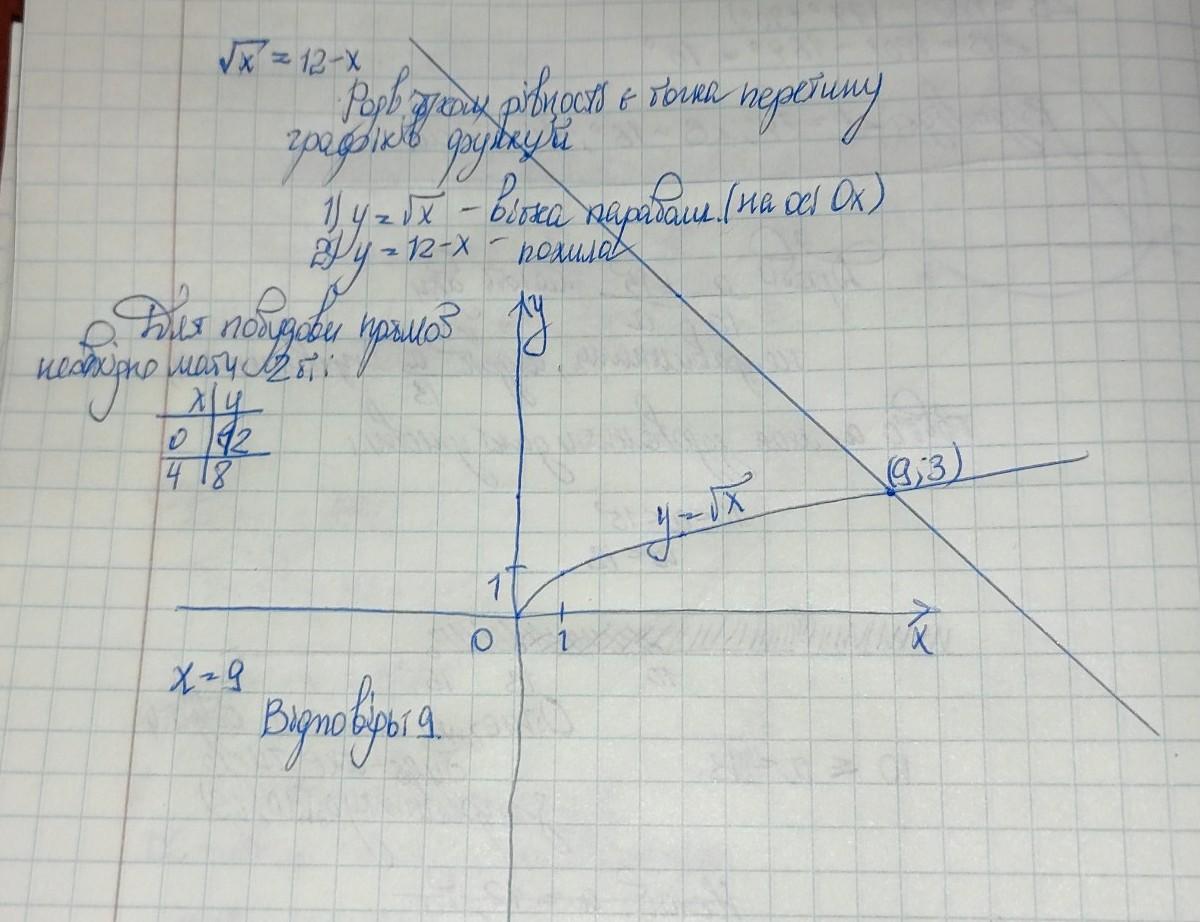 √x = 12-x
Розв'язком рівності є точка перетину
графіків функцій
1) y = √x - вітка параболи. (на осі Ox)
2) y = 12-x - похила
Для побудови прямої
необхідно мати 2 т.:
x | y
0 | 12
4 | 8
y
(9;3)
y = √x
1
0 1 x
x = 9
Відповідь: 9.